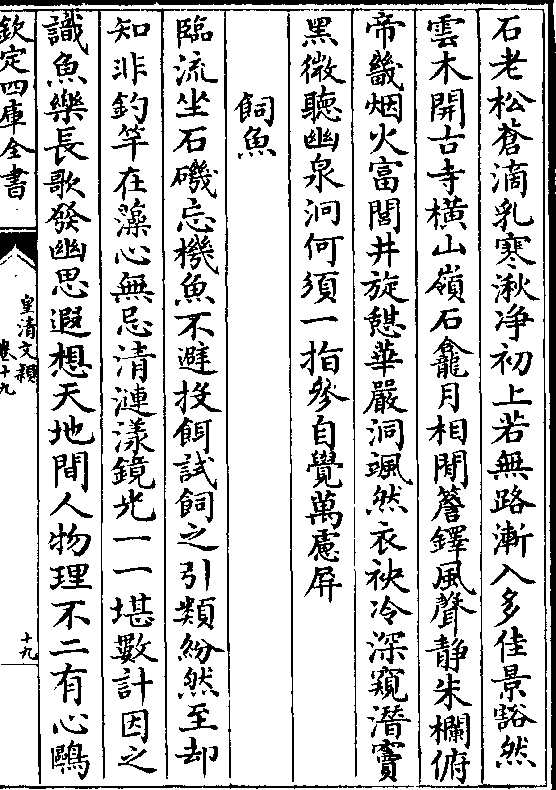 石老松蒼滴乳寒湫净初上若無路漸入多佳景豁然
雲木開古寺橫山嶺石龕月相閒簷鐸風聲靜朱欄俯
帝畿烟火富閭井旋憇華嚴洞颯然衣袂冷深窺潛竇
黑微聽幽泉泂何須一指參自覺萬慮屏
飼魚
臨流坐石磯忘機魚不避投餌試飼之引類紛然至却
知非釣竿在藻心無忌清漣漾鏡光一一堪數計因之
識魚樂長歌發幽思遐想天地間人物理不二有心鷗
欽定四庫全書
皇清文穎
卷十九
十九